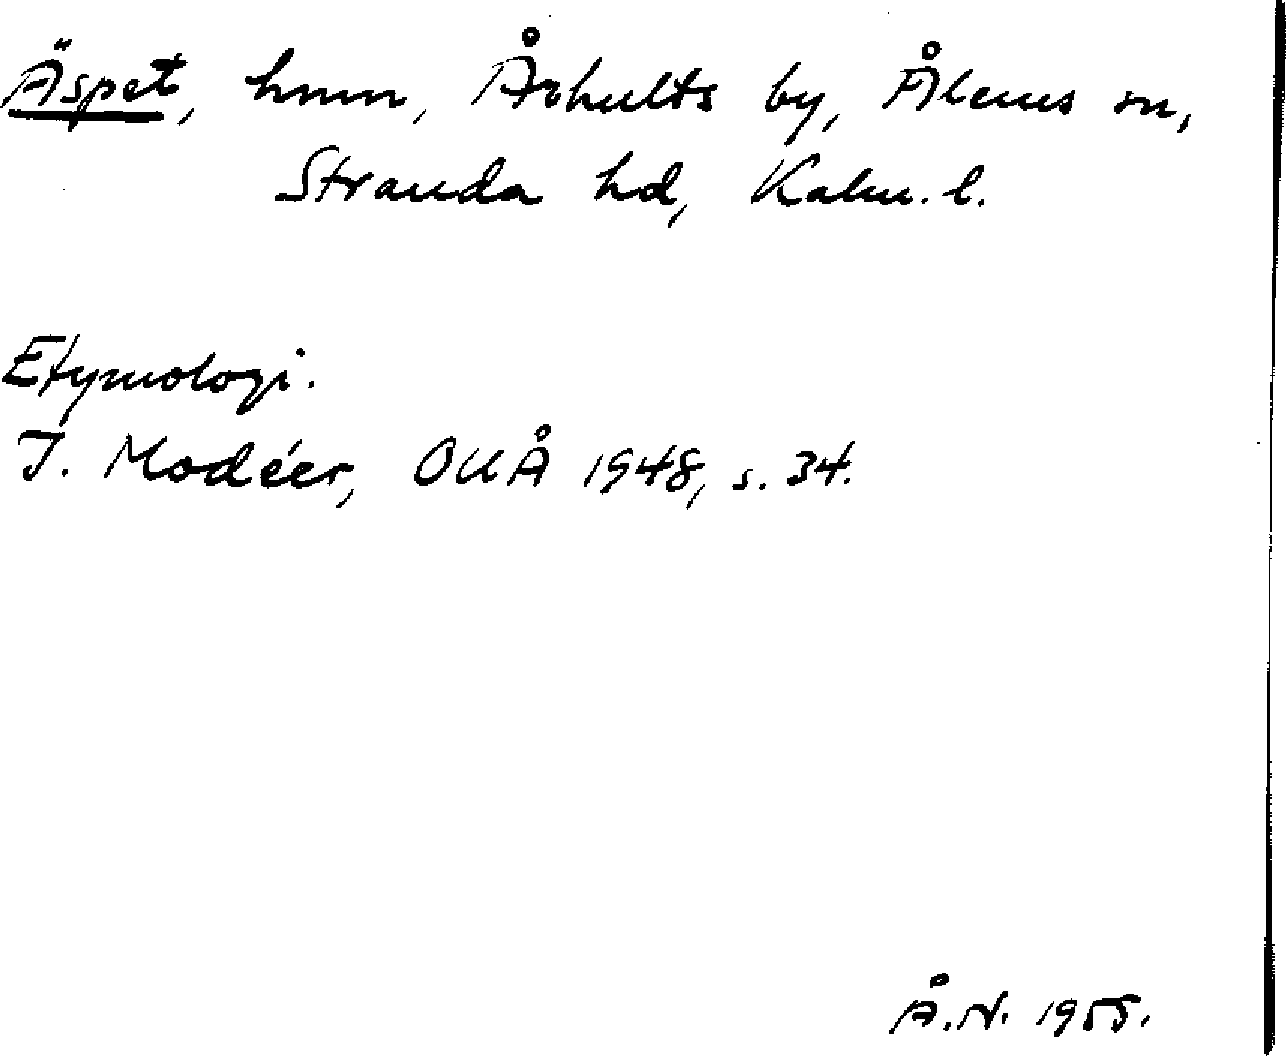 Äspet, hmn, Århults by, Ålems sn,
Stranda hd, Kalm. l.
Etymologi.
I. Modéer, OUÅ 1948, s. 34.
Å.N. 1955.